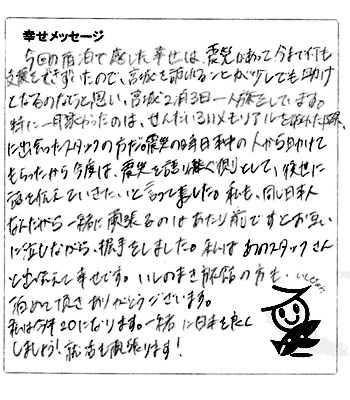 幸せメッセージ
今回の宿泊で感じた幸せは、震災があって今まで何も
支援をできずいたので、宮城を訪れることが少しでも助け
となるのならと思い、宮城2泊3日一人旅をしています。
特に一番良かったのは、せんだい3.11メモリアルを訪れた際、
に出会ったスタッフの方だ。震災の時日本中の人から助けて
もらったから今度は、震災を語り継ぐ側として、後世に
伝えていきたい、と言って事した。私も、同じ日本人
なんだから一緒に頑張るのはあたり前ですとお互い
に涙しながら、握手をしました。私はあのスタッフさん
と出会えて幸せです。いしのまき 方も、
泊めて頂きありがとうございます。
私は今年20になります。一緒に日本を良く
しましょう！就活も頑張ります！